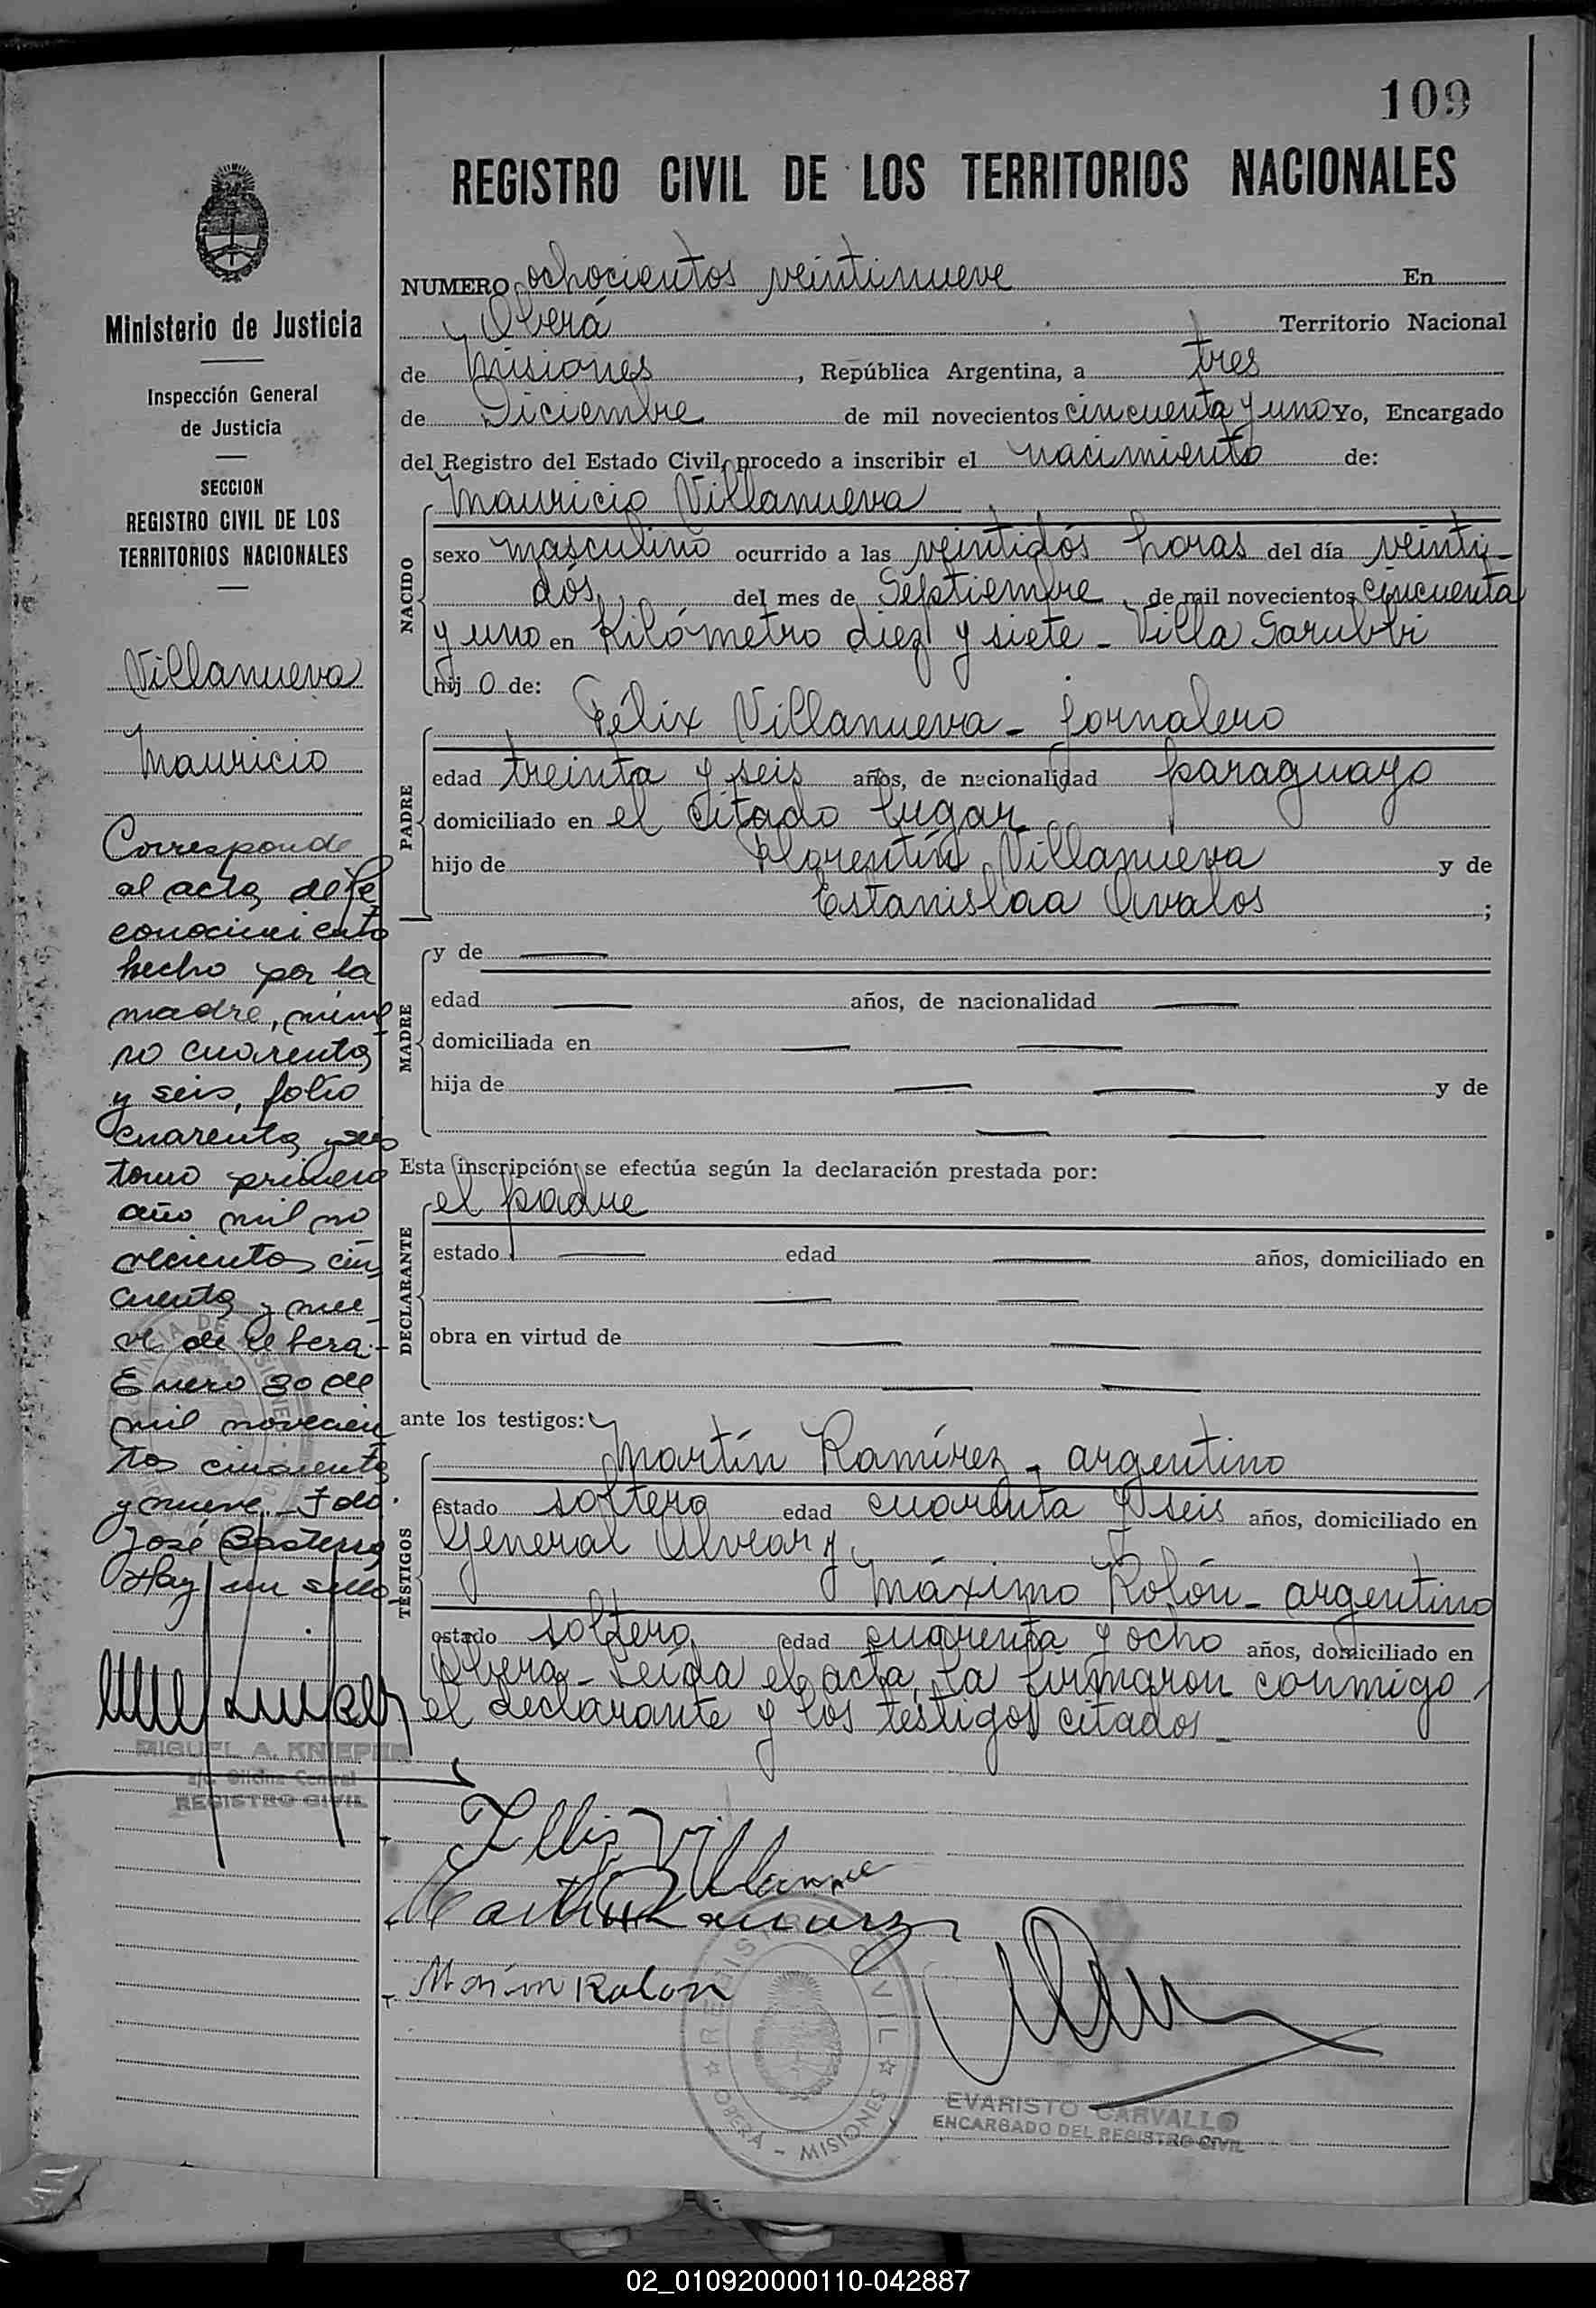 109
REGISTRO CIVIL DE LOS TERRITORIOS NACIONALES
Ministerio de Justicia
Inspección General
de Justicia
SECCION
REGISTRO CIVIL DE LOS
TERRITORIOS NACIONALES
Villanueva
Mauricio
Corresponde
al acta de re
conocimiento
hecho por la
madre, núme
ro cuarenta
y seis, folio
cuarenta y seis
tomo primero
año mil no
vecientos cin
cuenta y nue
ve de Obera.-
Enero 30 de
mil novecien
tos cincuenta
y nueve.- Fdo.
José Basterra
Hay un sello
MIGUEL A. KNIEPER
a/c. Oficina Central
REGISTRO CIVIL
NUMERO ochocientos veintinueve En
Oberá Territorio Nacional
de Misiones, República Argentina, a tres
de Diciembre de mil novecientos cincuenta y uno Yo, Encargado
del Registro del Estado Civil, procedo a inscribir el nacimiento de:
NACIDO
Mauricio Villanueva
sexo masculino ocurrido a las veintidós horas del día veinti-
dós, del mes de Septiembre de mil novecientos cincuenta
y uno en Kilómetro diez y siete - Villa Sarubbi
hijo de:
PADRE
Félix Villanueva - jornalero
edad treinta y seis años, de nacionalidad paraguayo
domiciliado en el citado lugar
hijo de Florentín Villanueva y de
Estanislaa Avalos ;
MADRE
y de
edad años, de nacionalidad
domiciliada en
hija de y de
Esta inscripción se efectúa según la declaración prestada por:
DECLARANTE
el padre
estado edad años, domiciliado en
obra en virtud de
ante los testigos:
TESTIGOS
Martín Ramírez - argentino
estado soltero edad cuarenta y seis años, domiciliado en
General Alvear y
Máximo Rolón - argentino
estado soltero edad cuarenta y ocho años, domiciliado en
Obera - Leída el acta, la firmaron conmigo
el declarante y los testigos citados -
REGISTRO CIVIL
OBERA - MISIONES
EVARISTO CARVALLO
ENCARGADO DEL REGISTRO CIVIL
02_010920000110-042887